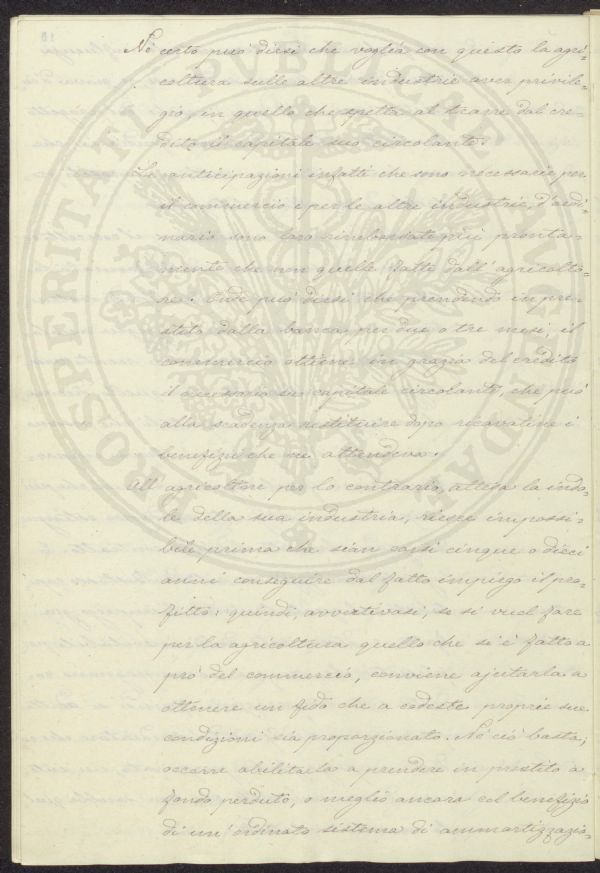 Nè certo può dirsi che voglia con questo la agri-
coltura sulle altre industrie aver privile-
gio, in quello che spetta al trarre dal cre-
dito il capitale suo circolante.
Le anticipazioni infatti che sono necessarie per
il commercio e per le altre industrie, d'ordi-
nario sono loro rimborsate più pronta-
mente che non quelle fatte dall'agricolto-
re. Onde può dirsi che prendendo in pre-
stito dalla banca per due o tre mesi, il
commercio ottiene in grazia del credito
il necessario suo capitale circolante, che può
alla scadenza restituire dopo ricavatine i
benefizii che ne attendeva.
All'agricoltore per lo contrario, attesa la indo-
le della sua industria, riesce impossi-
bile prima che sian corsi cinque o dieci
anni conseguire dal fatto impiego il pro-
fitto: quindi, avvertivasi, se si vuol fare
per la agricoltura quello che si è fatto a
prò del commercio, conviene ajutarla a
ottenere un fido che a codeste proprie sue
condizioni sia proporzionato. Nè ciò basta;
occorre abilitarla a prendere in prestito a
fondo perduto, o meglio ancora col benefizio
di un'ordinato sistema di ammortizzazio-
PROSPERITATI PUBLICAE AUGENDAE